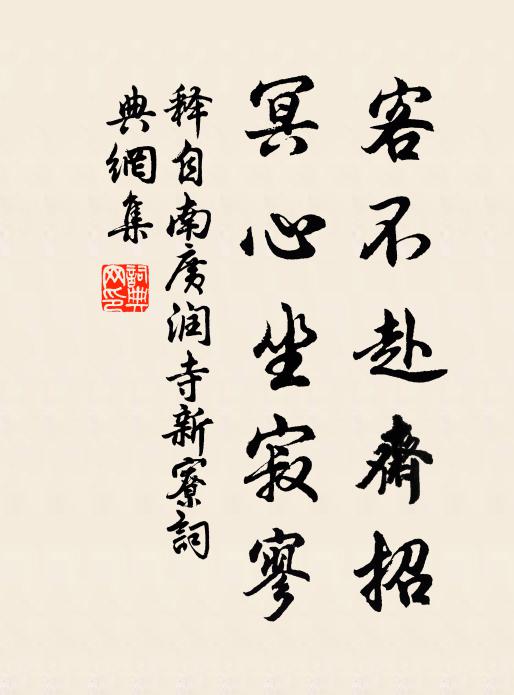 客不赴齋招
冥心坐寂寥
释自南廣润寺新寮詞
典網集
詞典网印